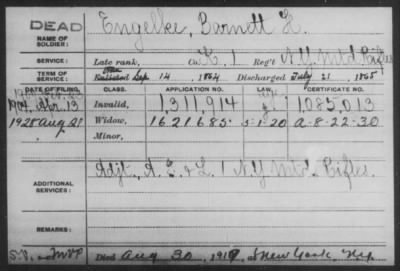 DEAD
NAME OF SOLDIER:
Engelke, Barnett H.
SERVICE:
Late rank, Co. K, 1 Reg't N.Y. Mtd Rifles
TERM OF SERVICE:
Enlisted Sep. 14, 1864 Discharged July 21, 1865
DATE OF FILING. CLASS. APPLICATION NO. LAW. CERTIFICATE NO.
1904 Apr. 13 Invalid, 1,311,914 1,085,013
1928 Aug 28 Widow, 1621685 5-1-20 A-8-22-30
Minor,
ADDITIONAL SERVICES:
Adjt., A. E & L. 1 N.Y. Mtd. Rifles.
REMARKS:
Died Aug 30, 1917, at New York, N.Y.